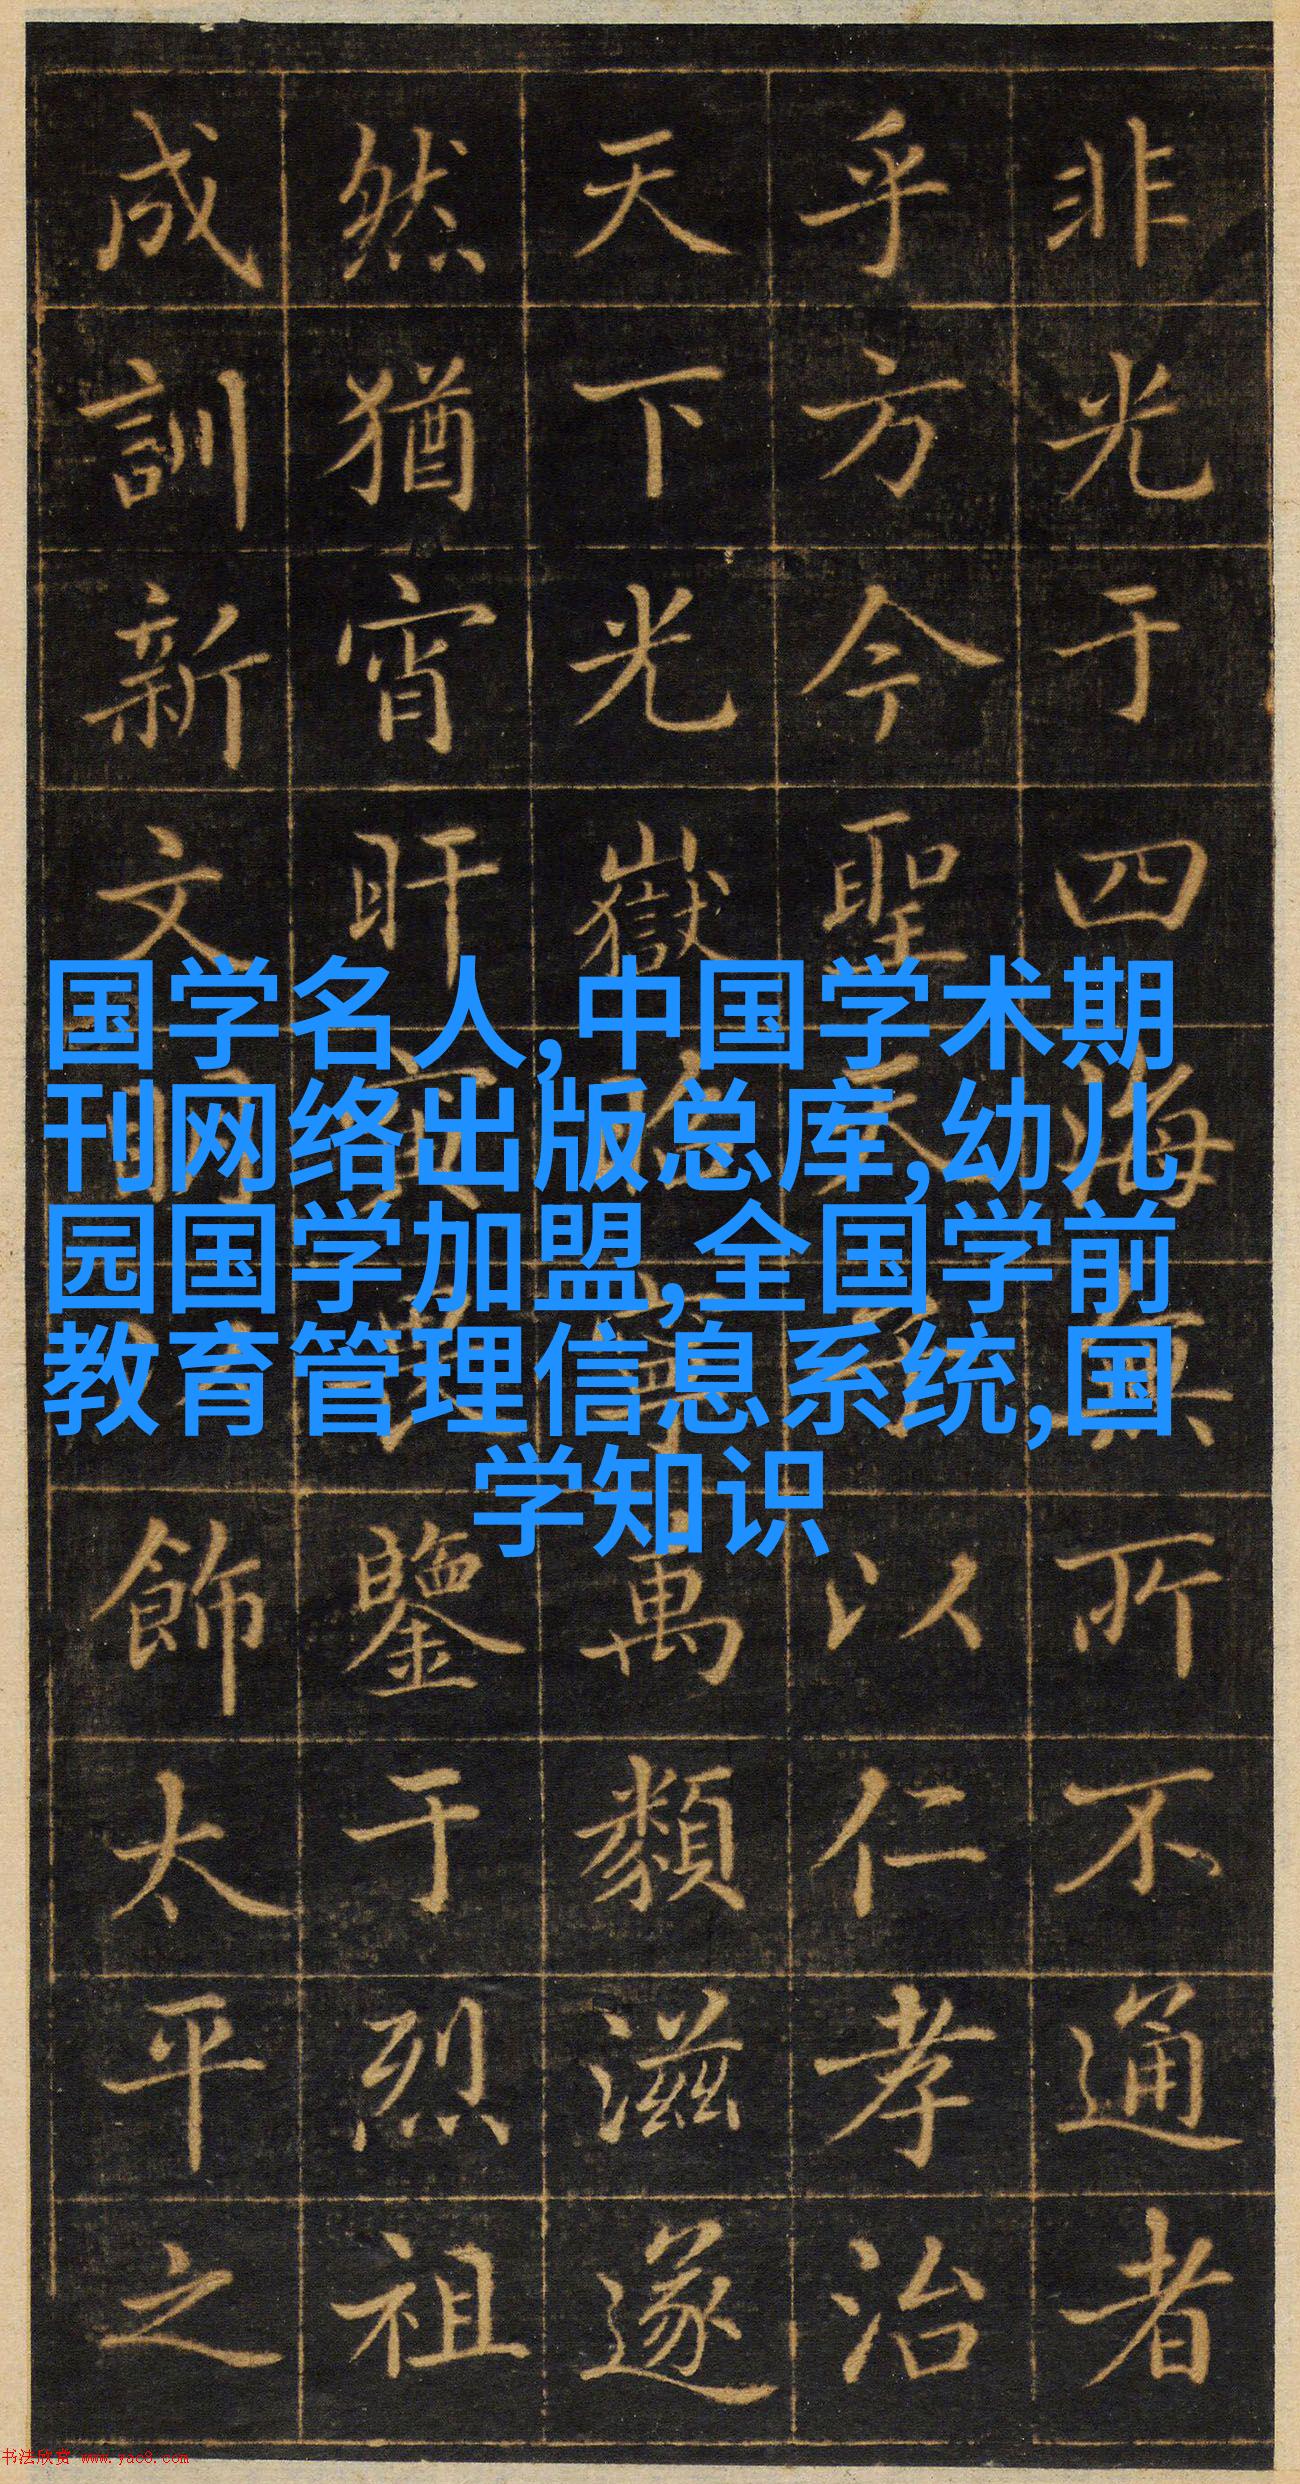 非光于四海無所不通者
乎方今聖天子以仁孝治
天下光嶽寧萬類滋遂
然猶宵旰寅畏鑒于烈祖
成訓新文明飾太平之
国学名人,中国学术期
刊网络出版总库,幼儿
园国学加盟,全国学前
教育管理信息系统,国
学知识
书法欣赏 www.yac8.com